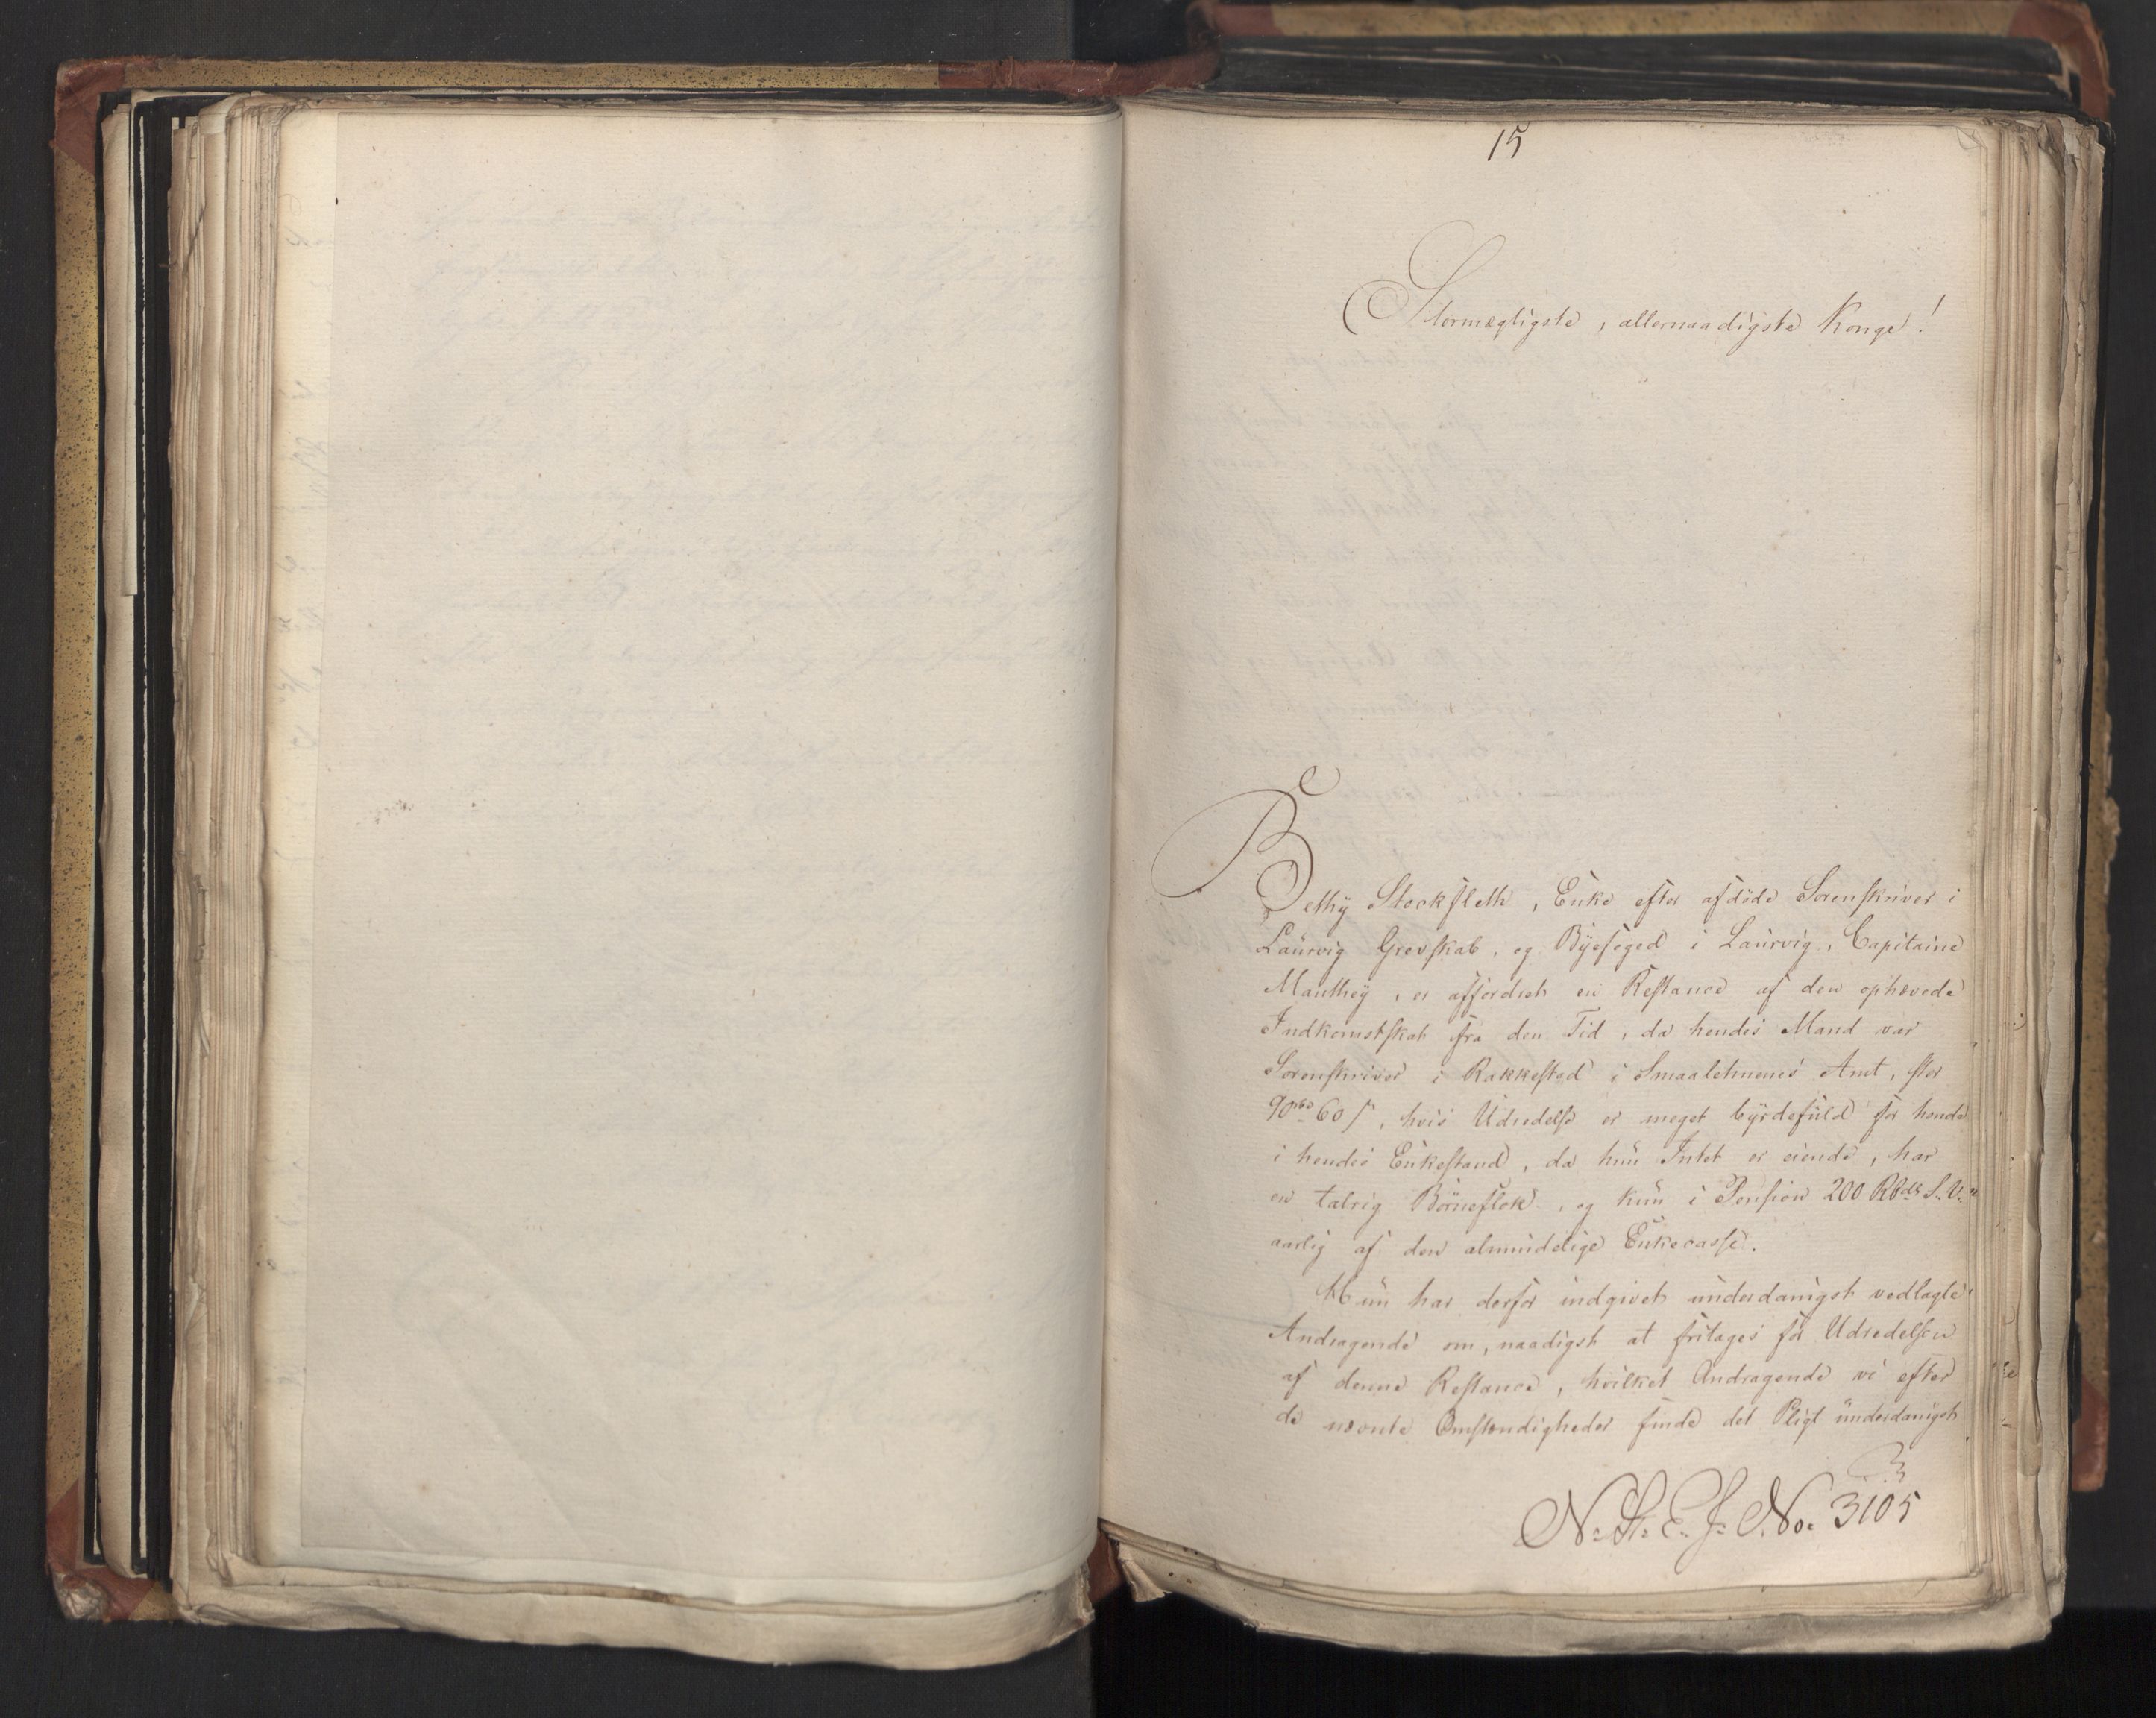 15
Stormægtigste, allernaadigste Konge!
Bethÿ Stockfleth, Enke efter afdöde Sorenskriver i
Laurvig Grevskab, og Bÿefoged i Laurvig, Capitaine
Mantheÿ, er affordret en Restance af den ophævede
Indkomstskat fra den Tid, da hendes Mand var
Sorenskriver i Rakkestad i Smaalehnenes Amt, stor
90 rbd 60 s, hvis Udredelse er meget byrdefuld for hende
i hendes Enkestand, da hun Intet er eiende, har
en talrig Börneflok, og kun i Pension 200 Rbdlr S. V.
aarlig af den almindelige Enkecasse.
Hun har derfor indgivet underdanigst vedlagte
Andragende om, naadigst at fritages for Udredelsen
af denne Restance, hvilket Andragende vi efter
de nævnte Omstændigheder finde det Pligt underdanigst
N: St: E: J: No: 3105